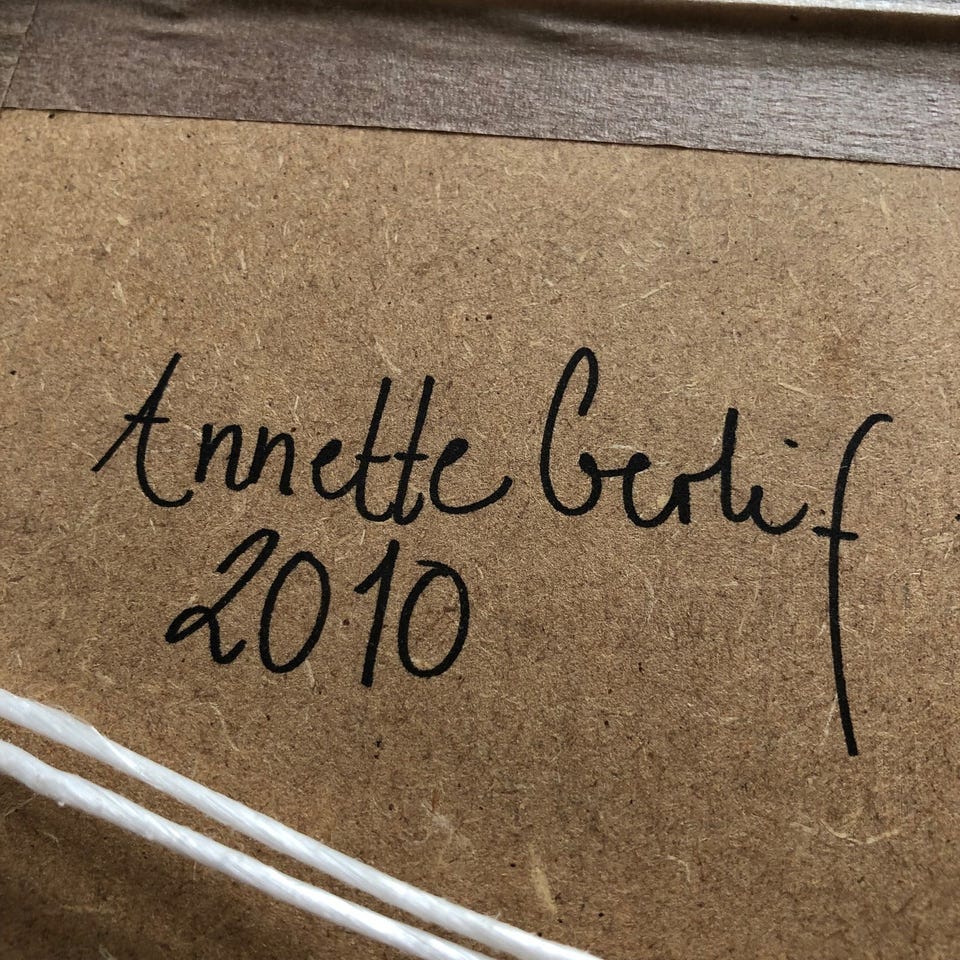 Annette Gerlif
2010